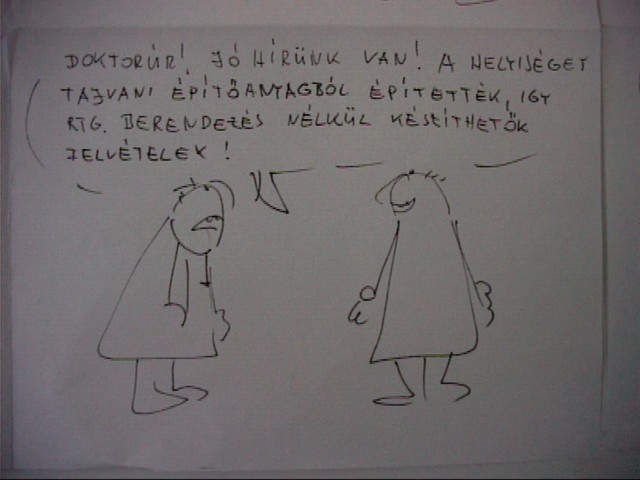 DOKTORÚR! JÓ HÍRÜNK VAN! A HELYISÉGET
TAJVANI ÉPÍTŐANYAGBÓL ÉPÍTETTÉK, IGY
RTG. BERENDEZÉS NÉLKÜL KÉSZÍTHETŐK
FELVÉTELEK!